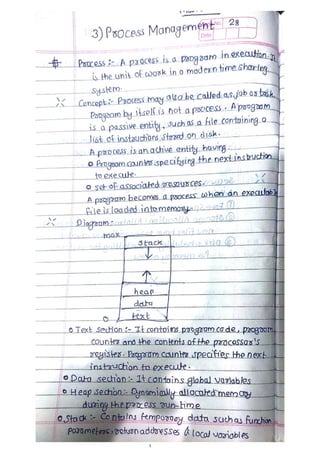 No. 28
Date
3) Process Management
Process :- A process is a program in execution. It
is the unit of work in a modern time sharing
system.
Concept:- Process may also be called as, job or task.
Program by itself is not a process. A program
is a passive entity, such as a file containing a
list of instructions stored on disk.
A process is an active entity having
Program counter specifying the next instruction
to execute.
set of associated resources.
A program becomes a process when an executable
file is loaded into memory.
Diagram:-
max
stack
heap
data
0 text
Text section :- It contains program code, program
counter and the contents of the processor's
register. Program counter specifies the next
instruction to execute.
Data section :- It contains global variables
Heap section:- Dynamically allocated memory
during the process run-time
Stack :- Contains temporary data such as function
parameters, return addresses & local variables
1